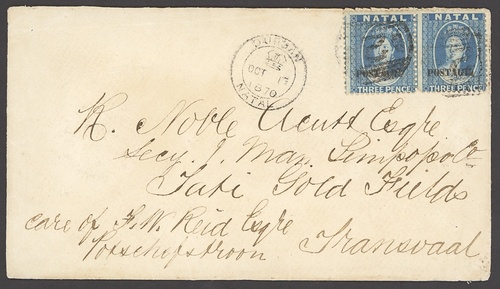 NATAL NATAL
POSTAGE POSTAGE
THREE PENCE THREE PENCE
DURBAN
OCT
1870
NATAL
R. Noble Acutt Esqre
Secy. & Man. Limpopo Co
Tati Gold Fields
care of F. W. Reid Esqre
Potschefstroon Transvaal